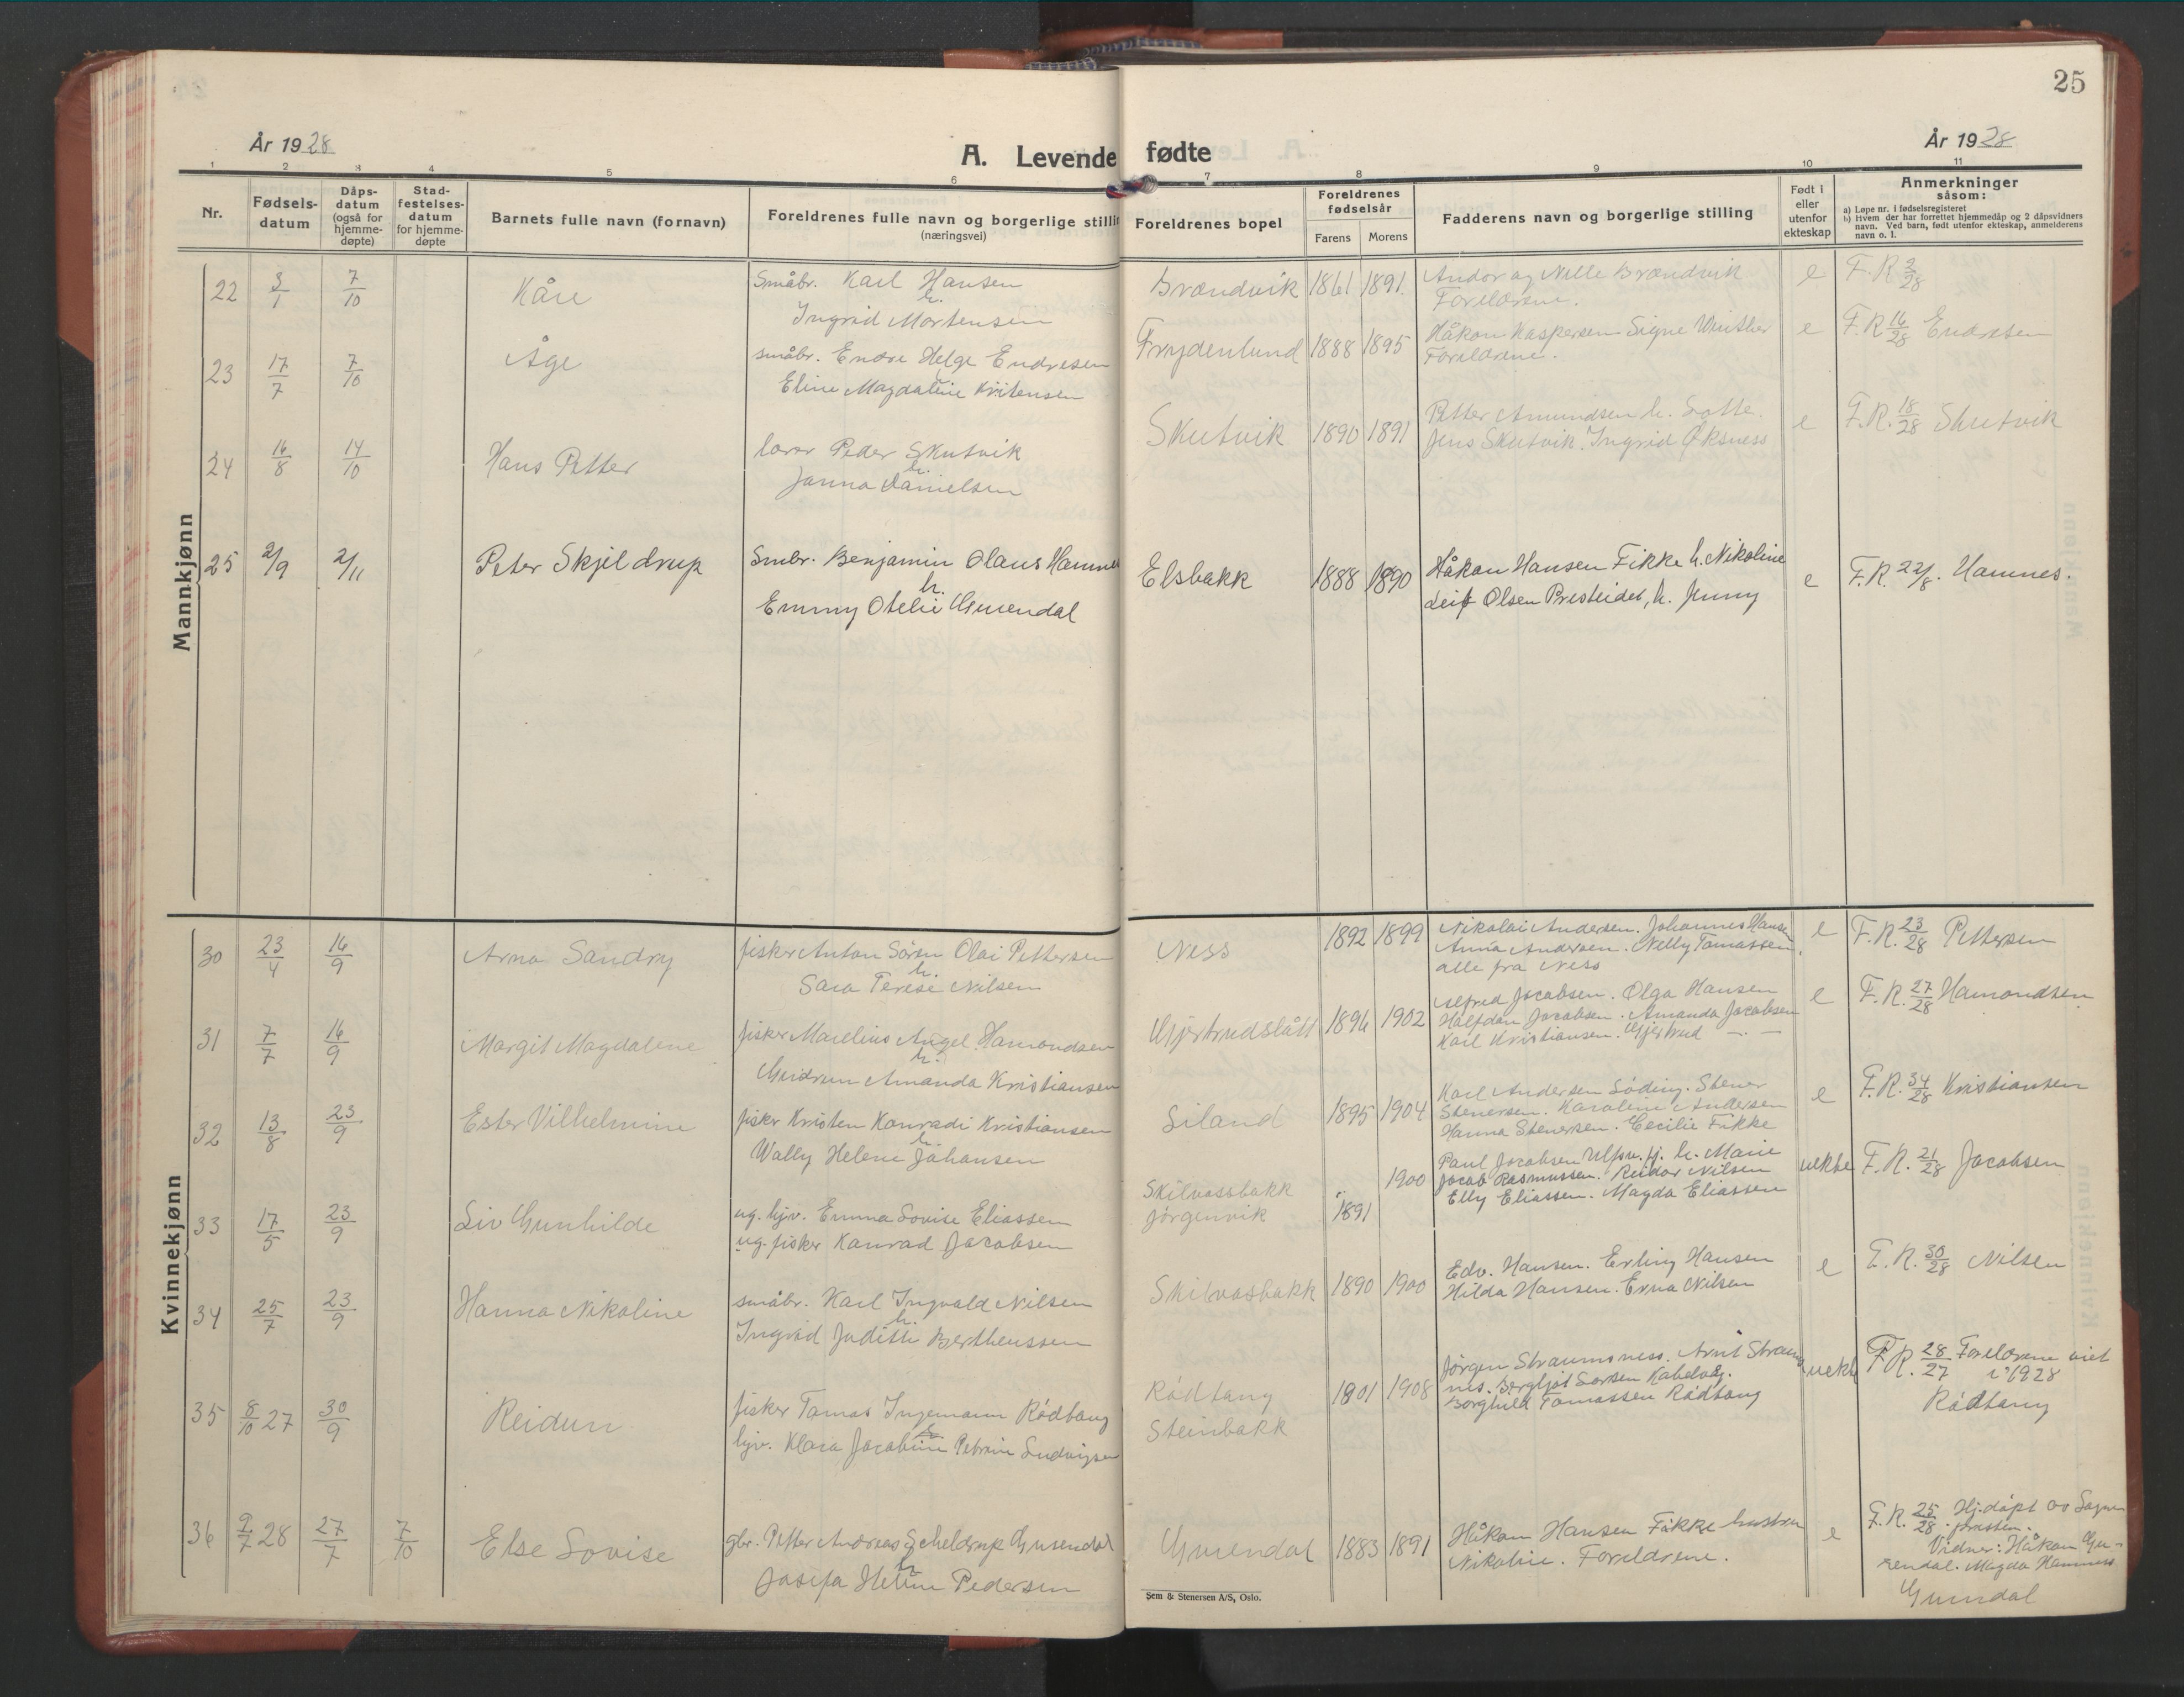 25
År 1928
A. Levende fødte
År 1928
1 2 3 4 5 6 7 8 9 10 11
Nr.
Fødsels-
datum
Dåps-
datum
(også for
hjemme-
døpte)
Stad-
festelses-
datum
for hjemme-
døpte
Barnets fulle navn (fornavn)
Foreldrenes fulle navn og borgerlige stillin
(næringsvei)
Foreldrenes bopel
Foreldrenes
fødselsår
Farens Morens
Fadderens navn og borgerlige stilling
Født i
eller
utenfor
ekteskap
Anmerkninger
såsom:
a) Løpe nr. i fødselsregisteret
b) Hvem der har forrettet hjemmedåp og 2 dåpsvidners
navn. Ved barn, født utenfor ekteskap, anmelderens
navn o. l.
Mannkjønn
22 3/1 7/10 Kåre
Småbr. Karl Hansen
h.
Ingrid Mortensen
Brændvik 1861 1891
Andor og Nelle Brændvik
Foreldrene.
e F.R 2/28
23 17/7 7/10 Åge
småbr. Endre Helge Endresen
Eline Magdalene Kritensen
Frydenlund 1888 1895
Håkon Kaspersen Signe Winther
Foreldrene.
e F.R 16/28 Endresen
24 16/8 14/10 Hans Petter
lærer Peder Skutvik
h.
Janna Danielsen
Skutvik 1890 1891
Petter Amundsen h. Lotte.
Jens Skutvik. Ingrid Øksness
e F.R. 18/28 Skutvik
25 2/9 2/11 Peter Skjeldrup
Smbr. Benjamin Olaus Hamnes
h.
Emmy Otelie Gusendal
Elsbakk 1888 1890
Håkon Hansen Fikke h. Nikoline
Leif Olsen Presteidet, h. Jenny
e F.R. 22/8. Hamnes.
Kvinnekjønn
30 23/4 16/9 Arna Sandry
fisker Anton Sørin Olai Pettersen
h.
Sara Terese Nilsen
Ness 1892 1899
Nikolai Andersen. Johannes Hansen
Anna Andersen. Nelly Tomassen,
alle fra Ness
e F.R. 23/28 Pettersen
31 7/7 16/9 Margit Magdalene
fisker Marelius Angel Hamondsen
h.
Gudrun Amanda Kristiansen
Gjertrudslått 1896 1902
Alfred Jocabsen. Olga Hansen
Halfdan Jacobsen. Amanda Jacobsen
Karl Kristiansen. Gjertrud —.—
e F.R. 27/28 Hamondsen
32 13/8 23/9 Ester Vilhelmine
fisker Kristen Konradi Kristiansen
h.
Wally Helene Johansen
Siland 1895 1904
Karl Andersen Söding. Stener
Stenersen. Karoline Andersen
Hanna Stenersen. Cecilie Fikke
e F.R. 34/28 Kristiansen
33 17/5 23/9 Liv Gunhilde
ug. hjv. Emma Lovise Eliassen
ug. fisker Konrad Jacobsen
Skilvassbakk
Jørgenvik 1891 1900
Paul Jocabsen Ulfsv. hj. h. Marie
Jacob Rasmussen. Reidar Nilsen
Elly Eliassen. Magda Eliassen
uekte F.R. 21/28 Jacobsen
34 25/7 23/9 Hanna Nikoline
småbr. Karl Ingvald Nilsen
h.
Ingrid Judith Bertheussen
Skilvasbakk 1890 1900
Edv. Hansen. Erling Hansen
Hilda Hansen. Erna Nilsen
e F.R. 30/28 Nilsen
35 8/10 27 30/9 Reidun
fisker Tomas Ingemann Rødtang
h.
hjv. Klara Jacobine Petrine Ludvigsen
Rödtang
Steinbakk
1901 1908
Jørgen Straumsness. Arnt Straums
nes. Bergljot Larsen Kabelvåg.
Borghild Tomassen Rødtang
uekte F.R. 28/27 Foreldrene viet
i 1928
Rødtang
36 9/7 28 27/7 7/10 Else Lovise
gbr. Petter Andreas Scheldrup Gusendal
h.
Josefa Helene Pedersen
Gusendal 1883 1891
Håkon Hansen Fikke hustru
Nikoline. Foreldrene.
e F.R. 25/28. Hj.døpt av Sogne
presten.
Vidner: Håkon Gu-
sendal. Magda Hamness
Gusendal
Sem & Stenersen A/S, Oslo.